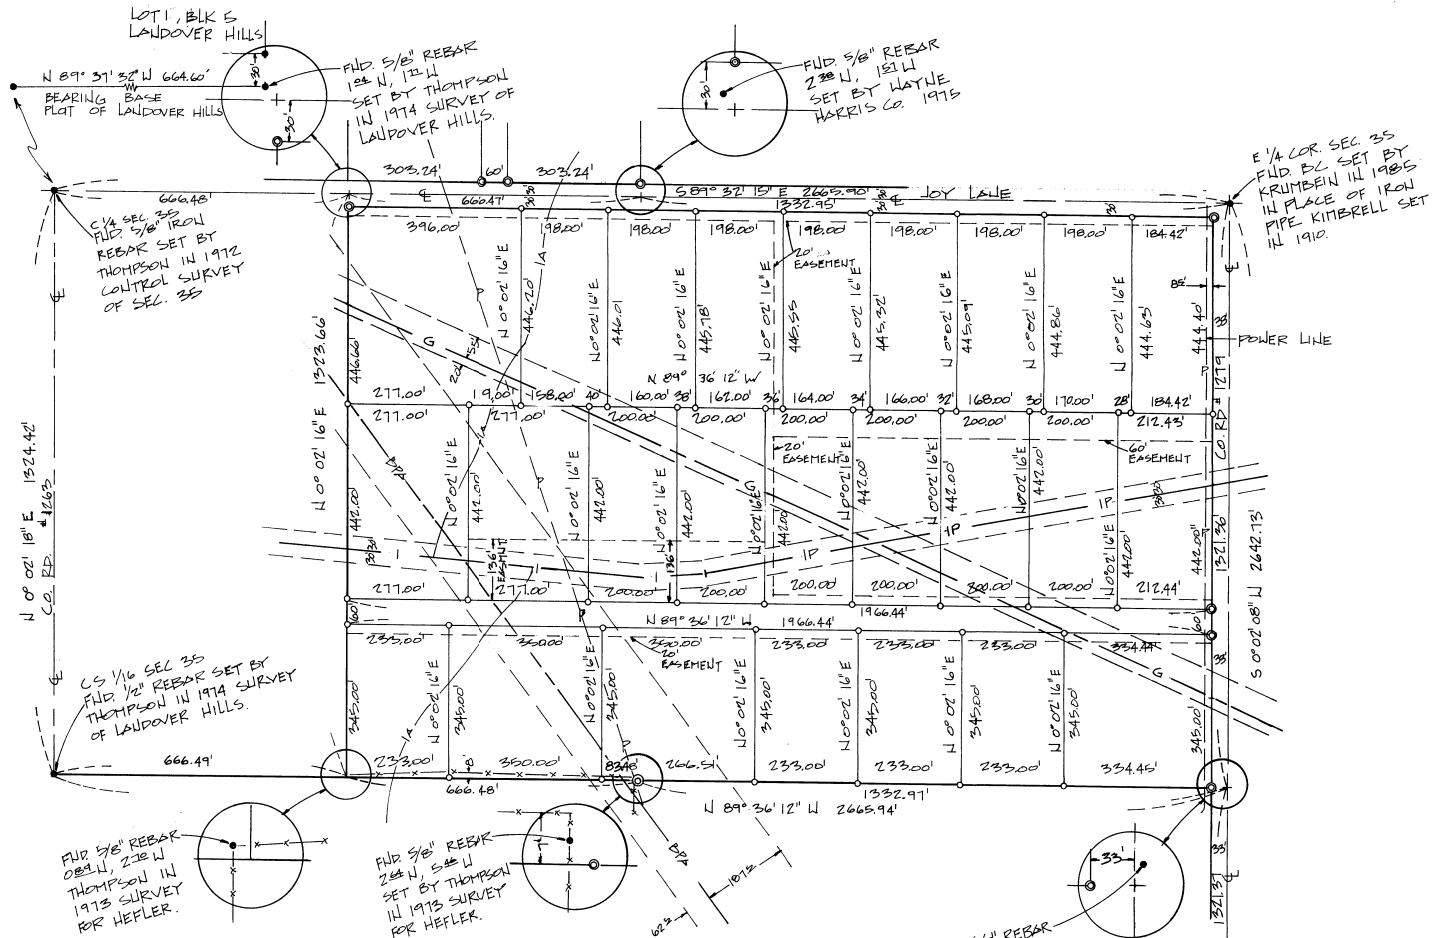 LOT 1, BLK 5
LANDOVER HILLS
N 89° 37' 32" W 664.60'
BEARING BASE
PLAT OF LANDOVER HILLS
30'
30'
FND. 5/8" REBAR
SET BY THOMPSON
IN 1974 SURVEY OF
LANDOVER HILLS.
30'
FND. 5/8" REBAR
SET BY WAYNE
HARRIS CO. 1975
E 1/4 COR. SEC. 35
FND. BC. SET BY
KRUMBEIN IN 1985
IN PLACE OF IRON
PIPE KIMBRELL SET
IN 1910.
303.24' 60' 303.24'
666.48' ℄ 666.47' S 89° 32' 15" E 2665.90' ℄ JOY LANE
1332.95'
C 1/4 SEC. 35
FND. 5/8" IRON
REBAR SET BY
THOMPSON IN 1972
CONTROL SURVEY
OF SEC. 35
396.00' 198.00' 198.00' 198.00' 198.00' 198.00' 198.00' 184.42'
20'
EASEMENT
N 0° 02' 16" E 1323.66'
446.66'
N 0° 02' 16" E 446.20'
N 0° 02' 16" E 446.01
N 0° 02' 16" E 445.78'
N 0° 02' 16" E 445.55
N 0° 02' 16" E 445.32'
N 0° 02' 16" E 445.09'
N 0° 02' 16" E 444.86'
N 0° 02' 16" E 444.63'
444.40'
POWER LINE
G
1A
P
N 89° 36' 12" W
277.00' 19.00' 158.00' 40' 160.00' 38' 162.00' 36' 164.00' 34' 166.00' 32' 168.00' 30' 170.00' 28' 184.42'
277.00' 277.00' 200.00' 200.00' 200.00' 200.00' 200.00' 200.00' 212.43'
20'
EASEMENT
60'
EASEMENT
N 0° 02' 18" E 1324.42'
CO. RD. #263
℄
442.00'
N 0° 02' 16" E 442.00'
N 0° 02' 16" E 442.00'
N 0° 02' 16" E 442.00'
N 0° 02' 16" E 442.00'
N 0° 02' 16" E 442.00'
N 0° 02' 16" E 442.00'
N 0° 02' 16" E 442.00'
N 0° 02' 16" E 442.00'
442.00'
CO. RD. #1279
1321.36'
S 0° 02' 08" W 2642.13'
BPA
1A
P
G
136'
EASEMENT
136'
IP
IP
IP
277.00' 277.00' 200.00' 200.00' 200.00' 200.00' 200.00' 200.00' 212.44'
1966.44'
60' N 89° 36' 12" W 1966.44' 60'
233.00' 350.00' 350.00' 233.00' 233.00' 233.00' 334.44'
20'
EASEMENT
G
33'
345.00'
N 0° 02' 16" E 345.00'
N 0° 02' 16" E 345.00'
N 0° 02' 16" E 345.00'
N 0° 02' 16" E 345.00'
N 0° 02' 16" E 345.00'
N 0° 02' 16" E 345.00'
345.00'
CS 1/16 SEC 35
FND. 1/2" REBAR SET BY
THOMPSON IN 1974 SURVEY
OF LANDOVER HILLS.
666.49' 233.00' 350.00' 266.51' 233.00' 233.00' 233.00' 334.45'
666.48' 1332.97'
N 89° 36' 12" W 2665.94'
1A
BPA
FND. 5/8" REBAR
THOMPSON IN
1973 SURVEY
FOR HEFLER.
FND. 5/8" REBAR
SET BY THOMPSON
IN 1973 SURVEY
FOR HEFLER.
33'
33'
℄
1321.37